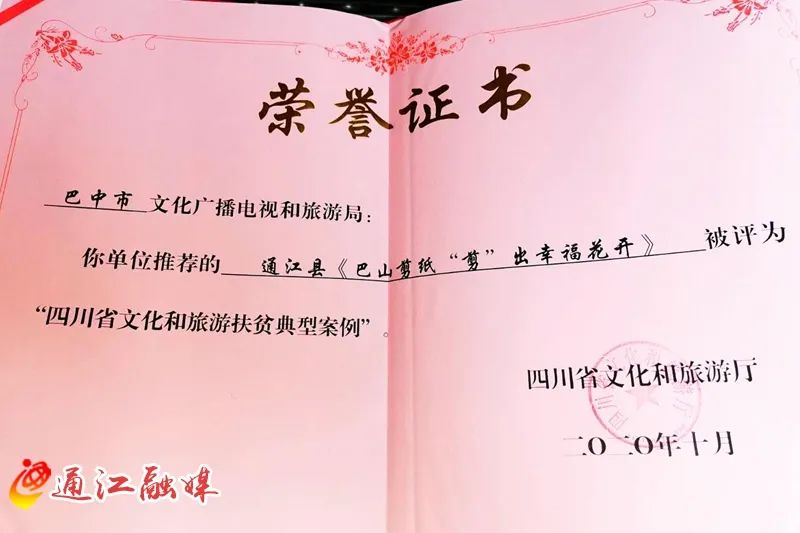 荣誉证书
巴中市 文化广播电视和旅游局：
你单位推荐的 通江县《巴山剪纸“剪”出幸福花开》 被评为
“四川省文化和旅游扶贫典型案例”。
四川省文化和旅游厅
二〇二〇年十月
通江融媒